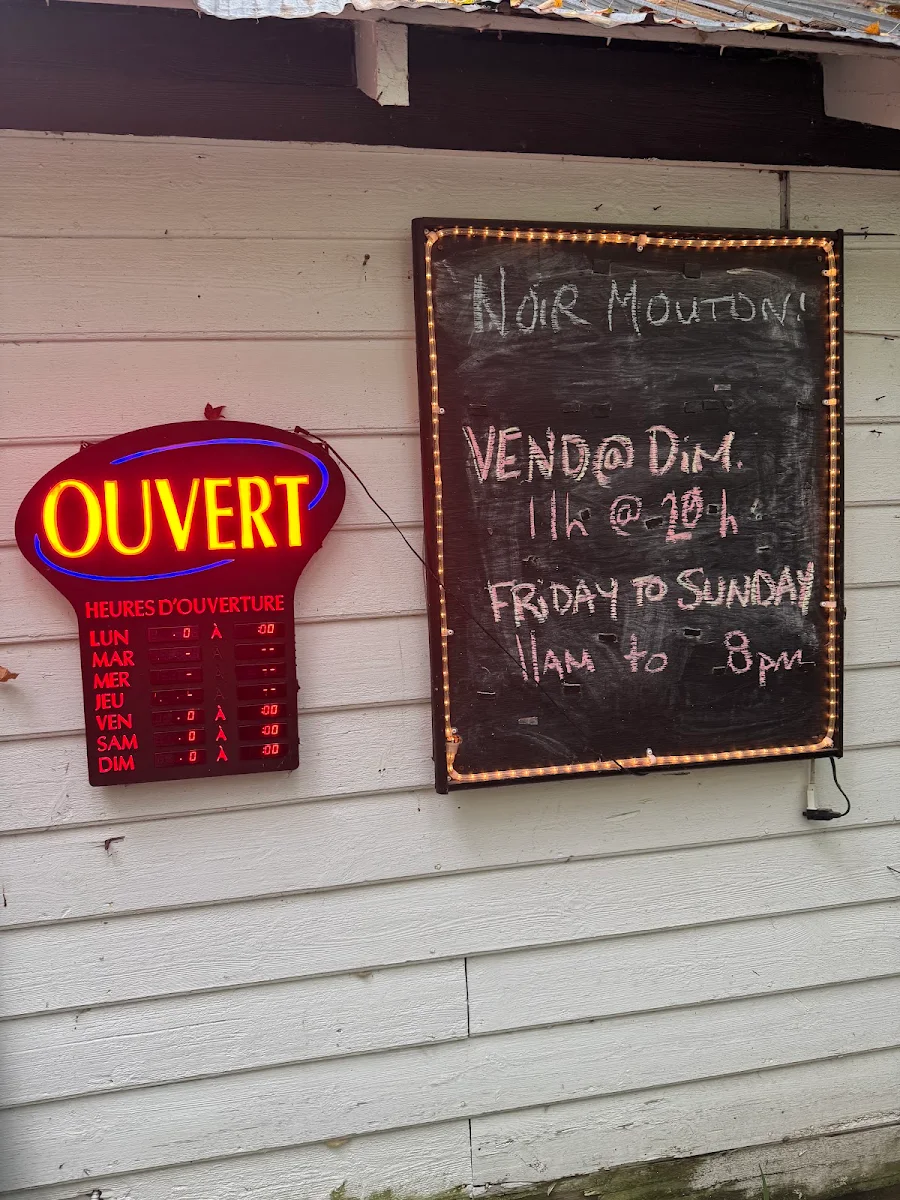 OUVERT
HEURES D'OUVERTURE
LUN 0 À :00
MAR - -
MER - -
JEU - -
VEN 0 À :00
SAM 0 À :00
DIM 0 À :00
NOIR MOUTON!
VEND@DIM.
11h @ 20h
FRIDAY TO SUNDAY
11AM to 8pm